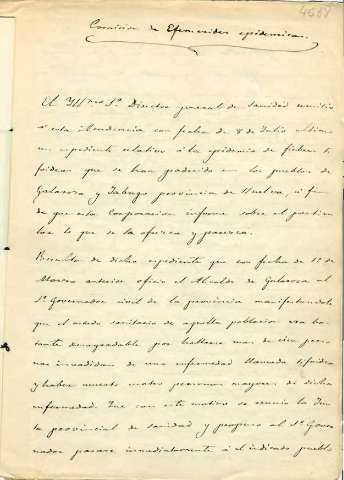 4651
Comision de Efemerides epidemicas.
El Yllmo Sr. Director general de sanidad remitió
á esta Academia con fecha de 8 de Julio ultimo
un espediente relativo á la epidemia de fiebres ti
foideas que se han padecido en los pueblos de
Galaroza y Jabugo provincia de Huelva, á fin
de que esta Corporacion informe sobre el particu
lar lo que se la ofrezca y parezca.
Resulta de dicho espediente que con fecha de 1º de
Marzo anterior oficio el Alcalde de Galaroza al
Sr. Governador civil de la provincia manifestandole
que el estado sanitario de aquella poblacion era bas
tante desagradable por hallarse mas de cien perso
nas invadidas de una enfermedad llamada tifoidea
y haber muerto personas mayores de dicha
enfermedad. Que con este motivo se reunio la Jun
ta provincial de sanidad y propuso al Sr. Gover
nador pasase inmediatamente á el indicado pueblo